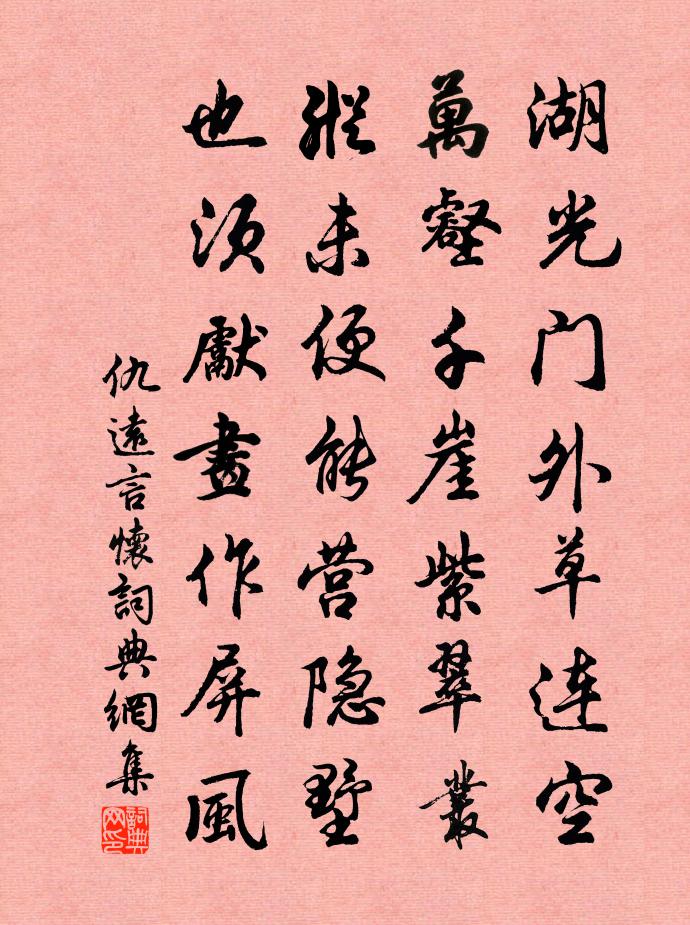 湖光门外草連空
萬壑千崖紫翠叢
縱未便能营隐墅
也須獻畫作屏風
仇遠言懷詞典網集
詞典网印